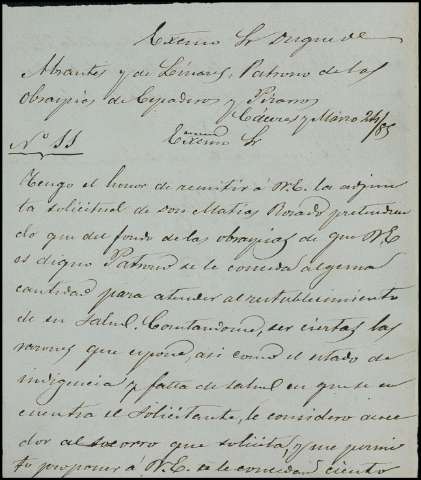 Excmo Sr Duque de
Abrantes y de Linares, Patrono de las
Obrapias de Espaderos y Pizarros
Cáceres y Marzo 24/85
Excmo Sr
No 11
Tengo el honor de remitir á V.E. la adjun
ta solicitud de Don Matias Rosado pretendien
do que del fondo de las obrapias de que V.E
es digno Patrono se le conceda alguna
cantidad para atender al restablecimiento
de su salud. Constandome, ser ciertas las
razones que espone, asi como el estado de
indigencia y falta de salud en que se en
cuentra el solicitante, le considero acree
dor al socorro que solicita, y me permi
to proponer á V.E. se le concedan ciento